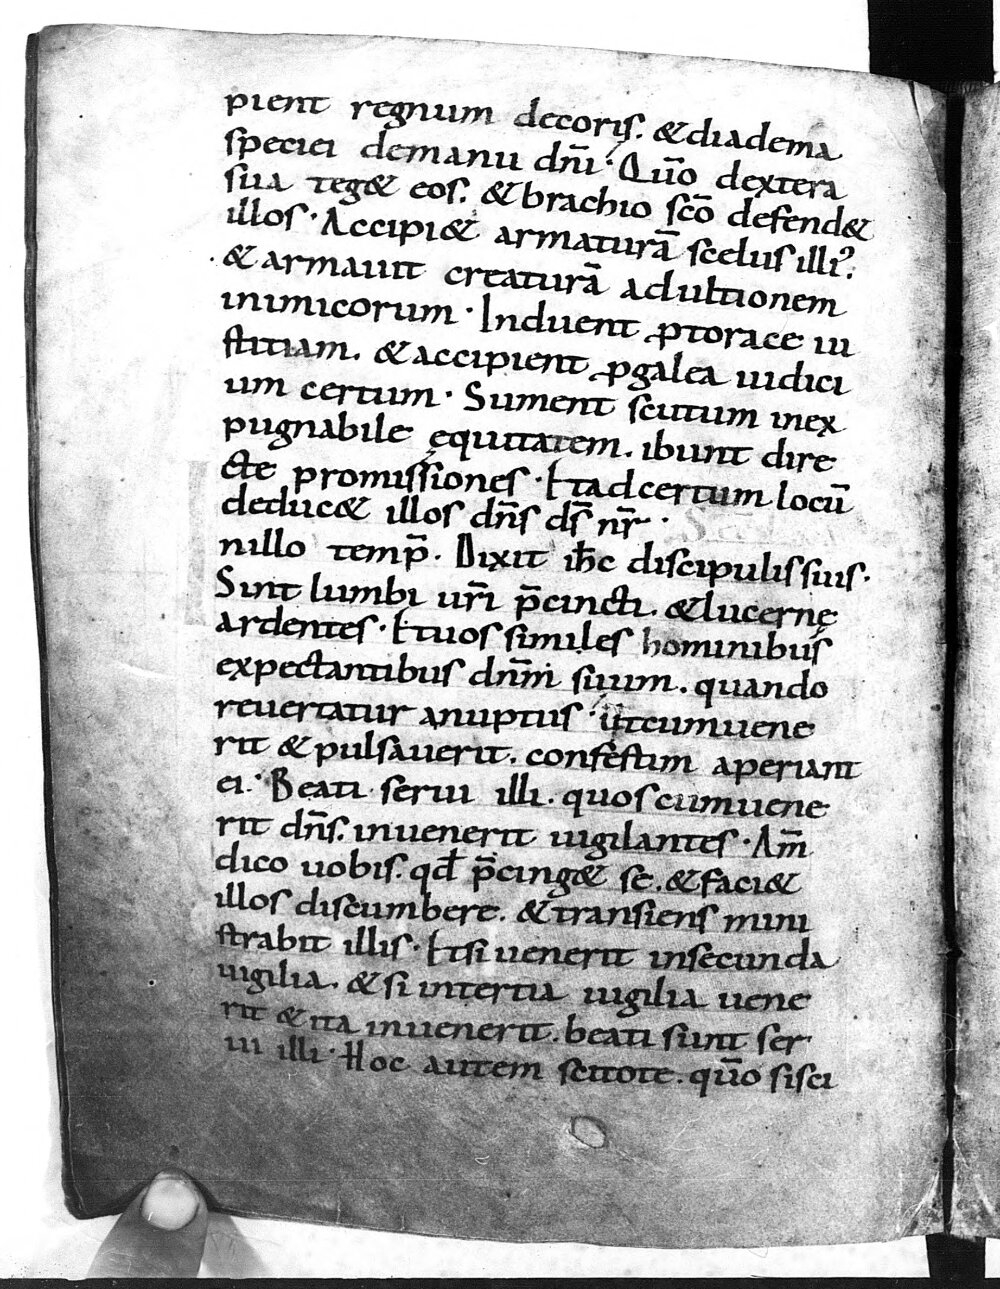 pient regnum decoris. & diadema
speciei demanu dn̄i · Qūo dextera
sua teg& eos. & brachio sc̄o defend&
illos · Accipi& armaturā scelus illi?
& armauit creaturā adultionem
inimicorum · Induent ꝓtorace iu
stitiam. & accipient ꝓgalea iudici
um certum · Sument scutum inex
pugnabile ęquitatem. ibunt dire
cte promissiones · Et adcertum locū
deduc& illos dn̄s ds̄ nr̄ ·
nillo temp̄. Dixit ih̄c discipulis suis ·
Sint lumbi ur̄i p̄cincti. & lucernę
ardentes · Et uos similes hominibus
expectantibus dn̄m suum. quando
reuertatur anuptus · ut cumuene
rit & pulsauerit. confestim aperiant
ei · Beati serui illi. quos cumuene
rit dn̄s. inuenerit uigilantes · Am̄
dico uobis. qđ p̄cing& se. & faci&
illos discumbere. & transiens mini
strabit illis · Et si uenerit insecunda
uigilia. & si intertia uigilia uene
rit & ita inuenerit. beati sunt ser
ui illi · Hoc autem scitote. qūo si sci